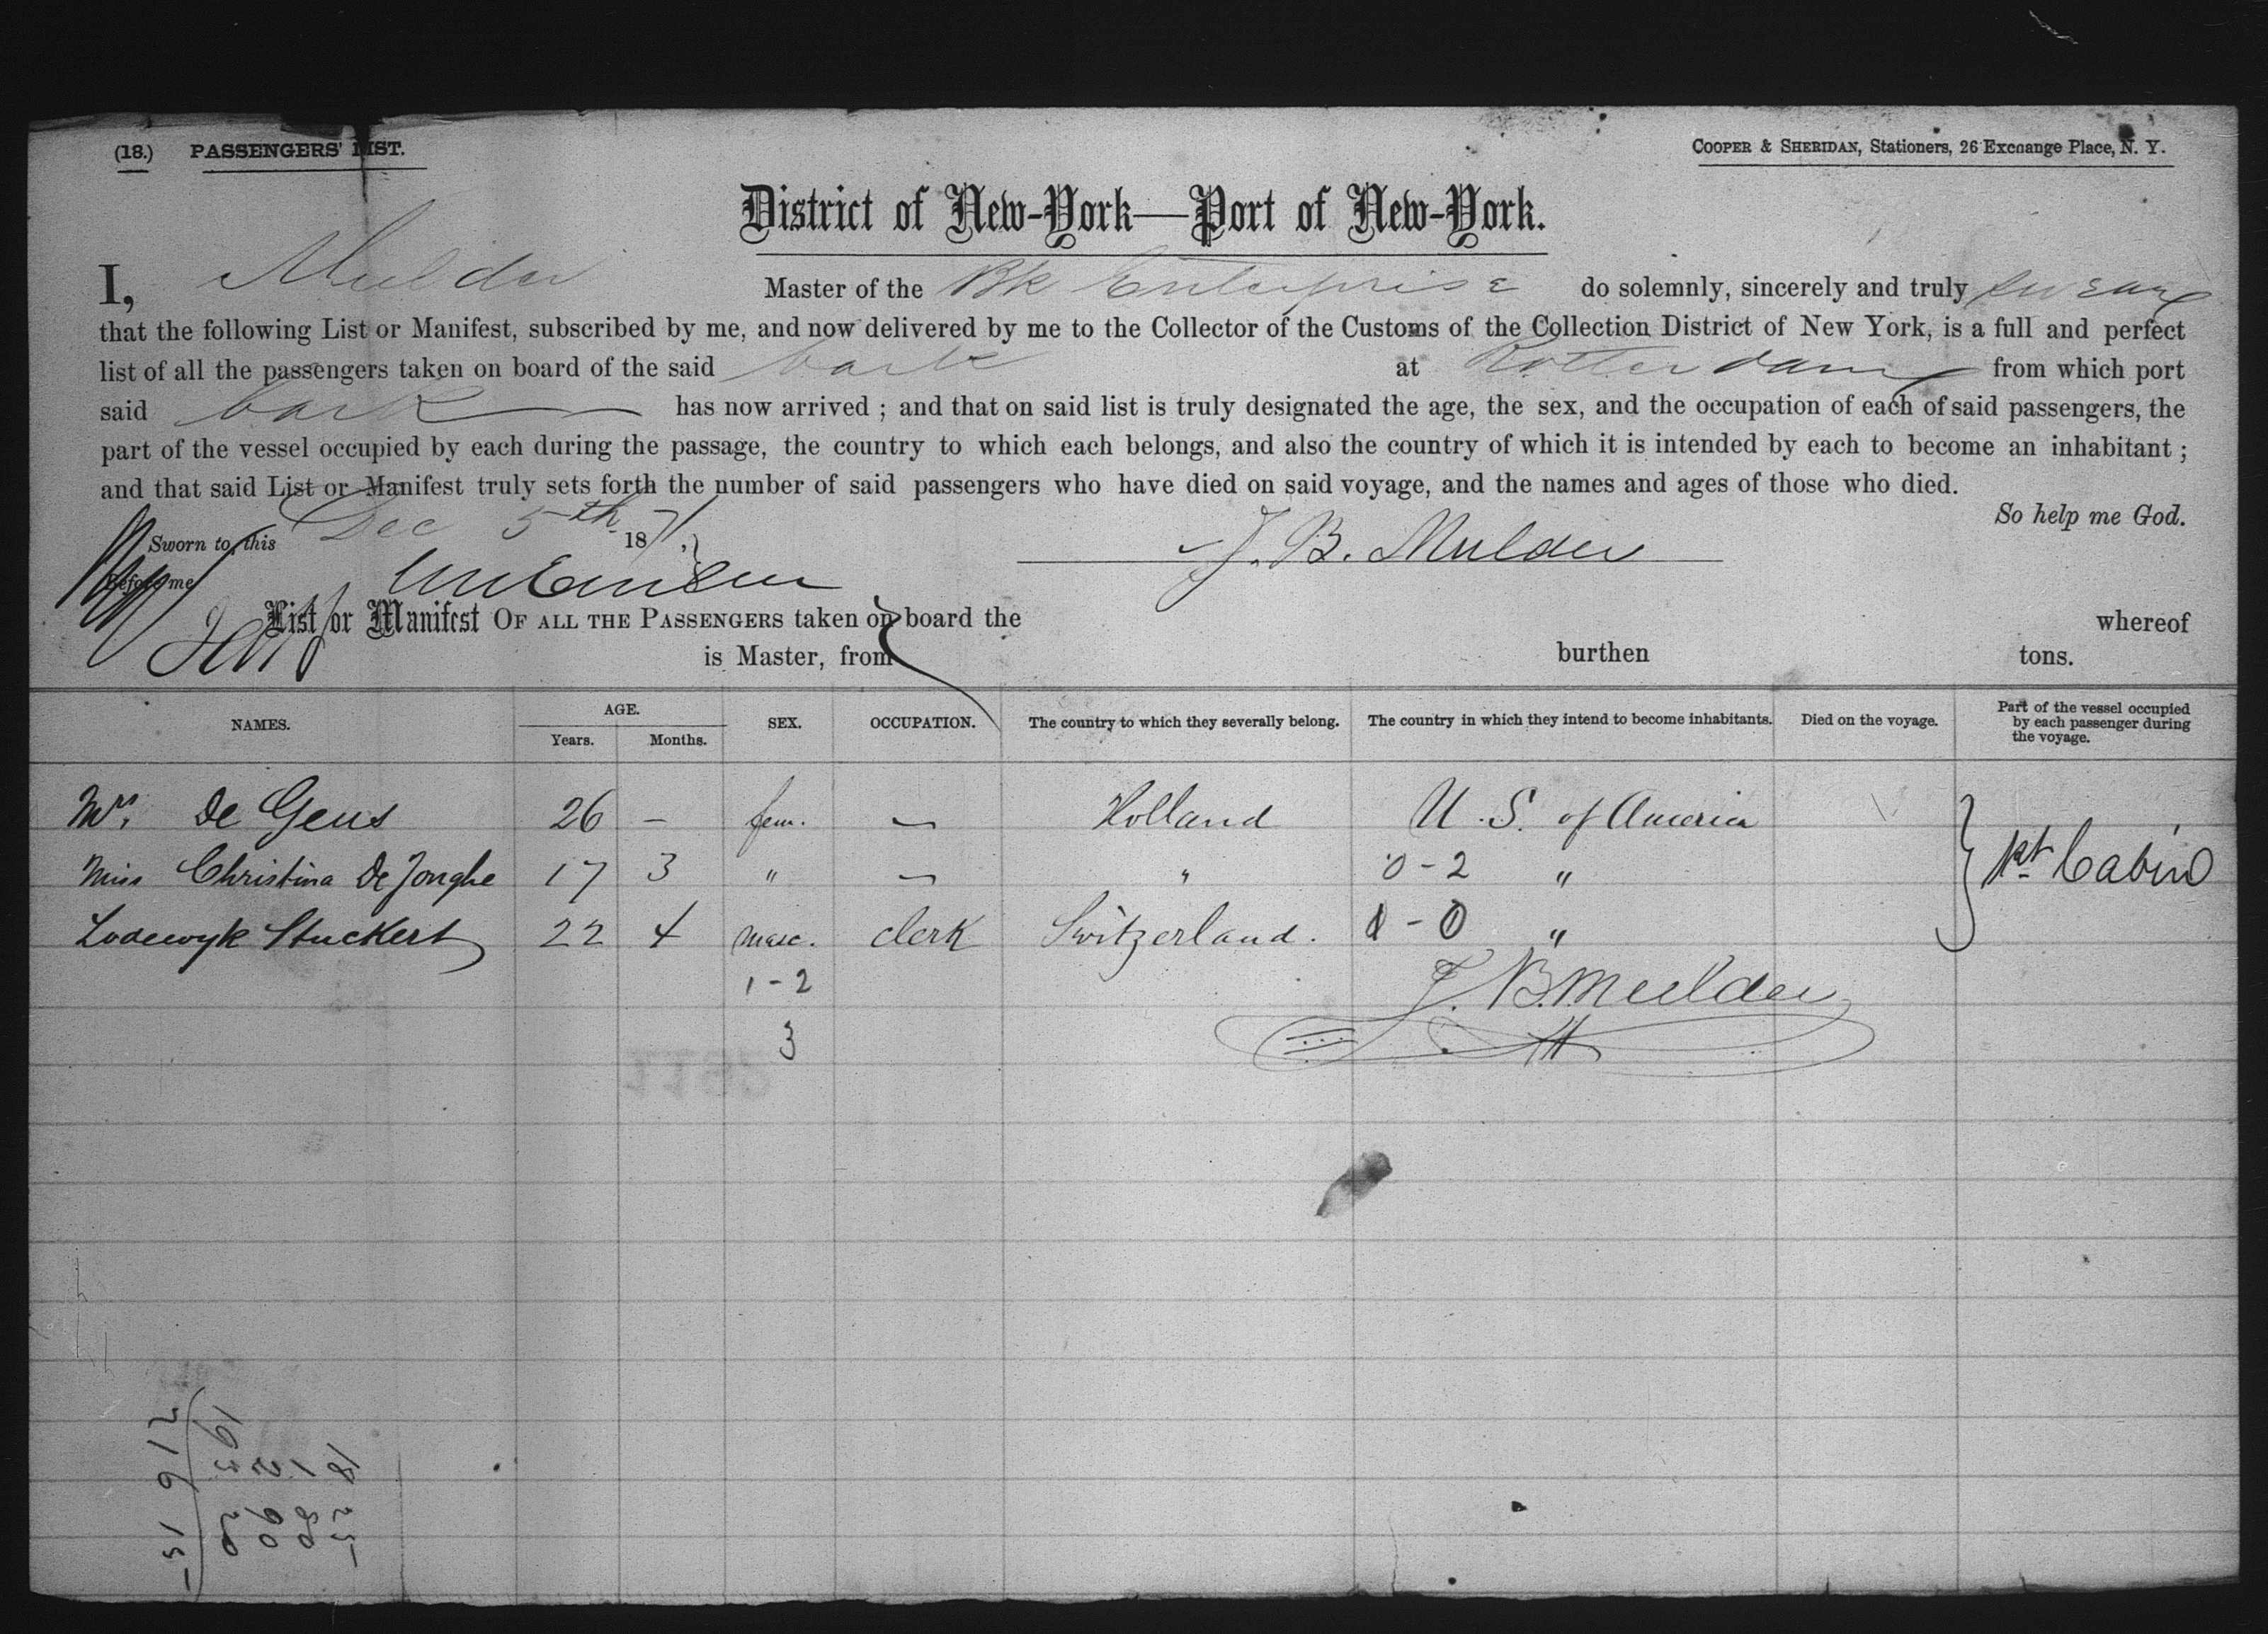 (18.) PASSENGERS' LIST.
COOPER & SHERIDAN, Stationers, 26 Exchange Place, N. Y.
District of New-York—Port of New-York.
I, Mulder Master of the Bk Enterprise do solemnly, sincerely and truly swear
that the following List or Manifest, subscribed by me, and now delivered by me to the Collector of the Customs of the Collection District of New York, is a full and perfect
list of all the passengers taken on board of the said bark at Rotterdam from which port
said bark has now arrived ; and that on said list is truly designated the age, the sex, and the occupation of each of said passengers, the
part of the vessel occupied by each during the passage, the country to which each belongs, and also the country of which it is intended by each to become an inhabitant ;
and that said List or Manifest truly sets forth the number of said passengers who have died on said voyage, and the names and ages of those who died.
So help me God.
Sworn to, this Dec 5th 1871,
J. B. Mulder
Before me
List or Manifest OF ALL THE PASSENGERS taken on board the whereof
is Master, from burthen tons.
NAMES. AGE. Years. Months. SEX. OCCUPATION. The country to which they severally belong. The country in which they intend to become inhabitants. Died on the voyage. Part of the vessel occupied by each passenger during the voyage.
Mrs. De Geus 26 – fem. – Holland U. S. of America
Miss Christina De Jonghe 17 3 " – " 0-2 " 1st Cabin
Lodewyk Stuckert 22 4 masc. clerk Switzerland. 1-0 "
1-2
J. B. Mulder
3